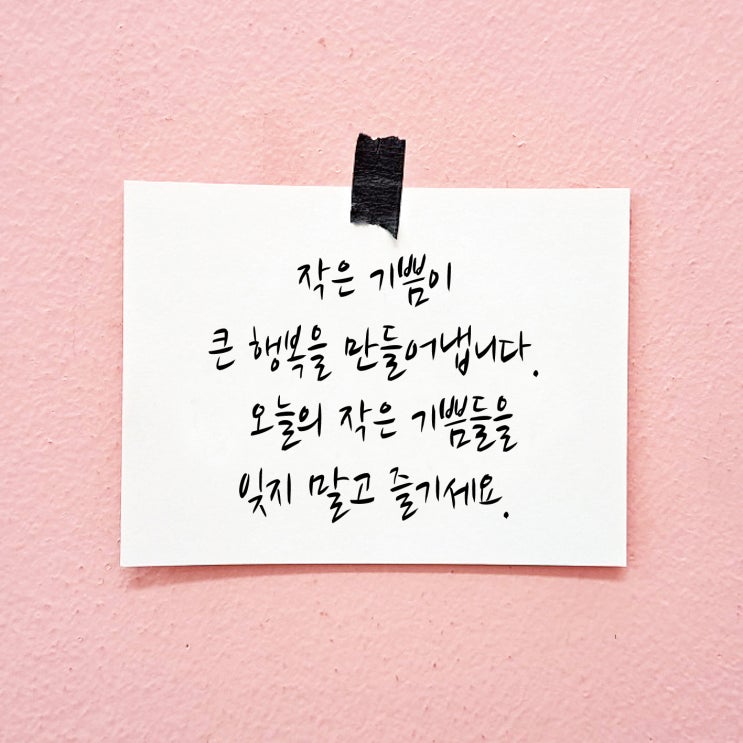 작은 기쁨이
큰 행복을 만들어냅니다.
오늘의 작은 기쁨들을
잊지 말고 즐기세요.